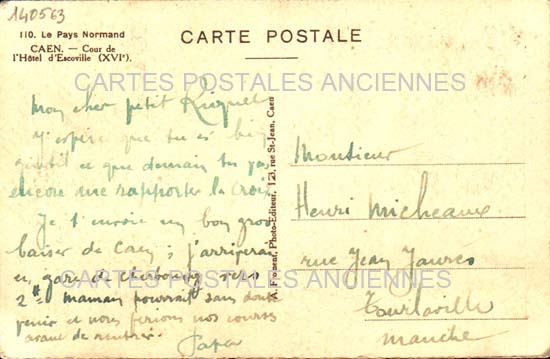 140563
110. Le Pays Normand
CAEN. — Cour de
l'Hôtel d'Escoville (XVIᵉ).
CARTE POSTALE
CARTES POSTALES ANCIENNES
Mon cher petit Riquet
J'espère que tu es bien
gentil et que demain tu vas
encore me rapporter la croix
Je t'envoie un bon gros
baiser de Caen ; j'arriverai
en gare de Cherbourg vers
2ʰ maman pourrait sans doute
venir et nous ferions nos courses
avant de rentrer.
Papa
A. Froment, Photo-Editeur, 123, rue St-Jean, Caen
Monsieur
Henri Micheaux
rue Jean Jaurès
Tourlaville
Manche
CARTES POSTALES ANCIENNES